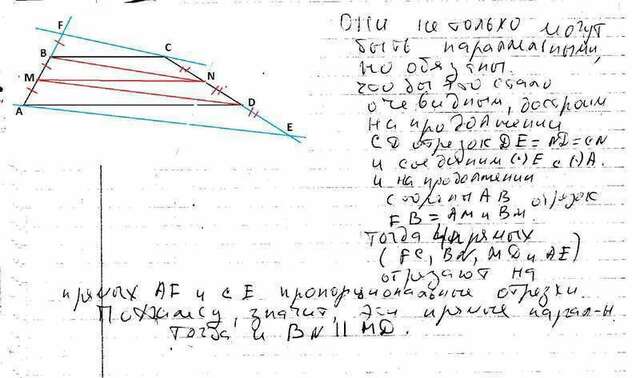 F
B
C
M
N
A
D
E
Они не только могут
быть параллельными,
но обязаны.
чтобы это стало
очевидным, достроим
на продолжении
CD отрезок DE = ND = CN
и соединим (·) E с (·) A.
и на продолжении
стороны AB отрезок
FB = AM и BM.
Тогда 4 прямых
(FC, BN, MD и AE)
отрезают на
прямых AF и CE пропорциональные отрезки.
По Фалесу, значит, эти прямые парал-ы.
Тогда и BN || MD.